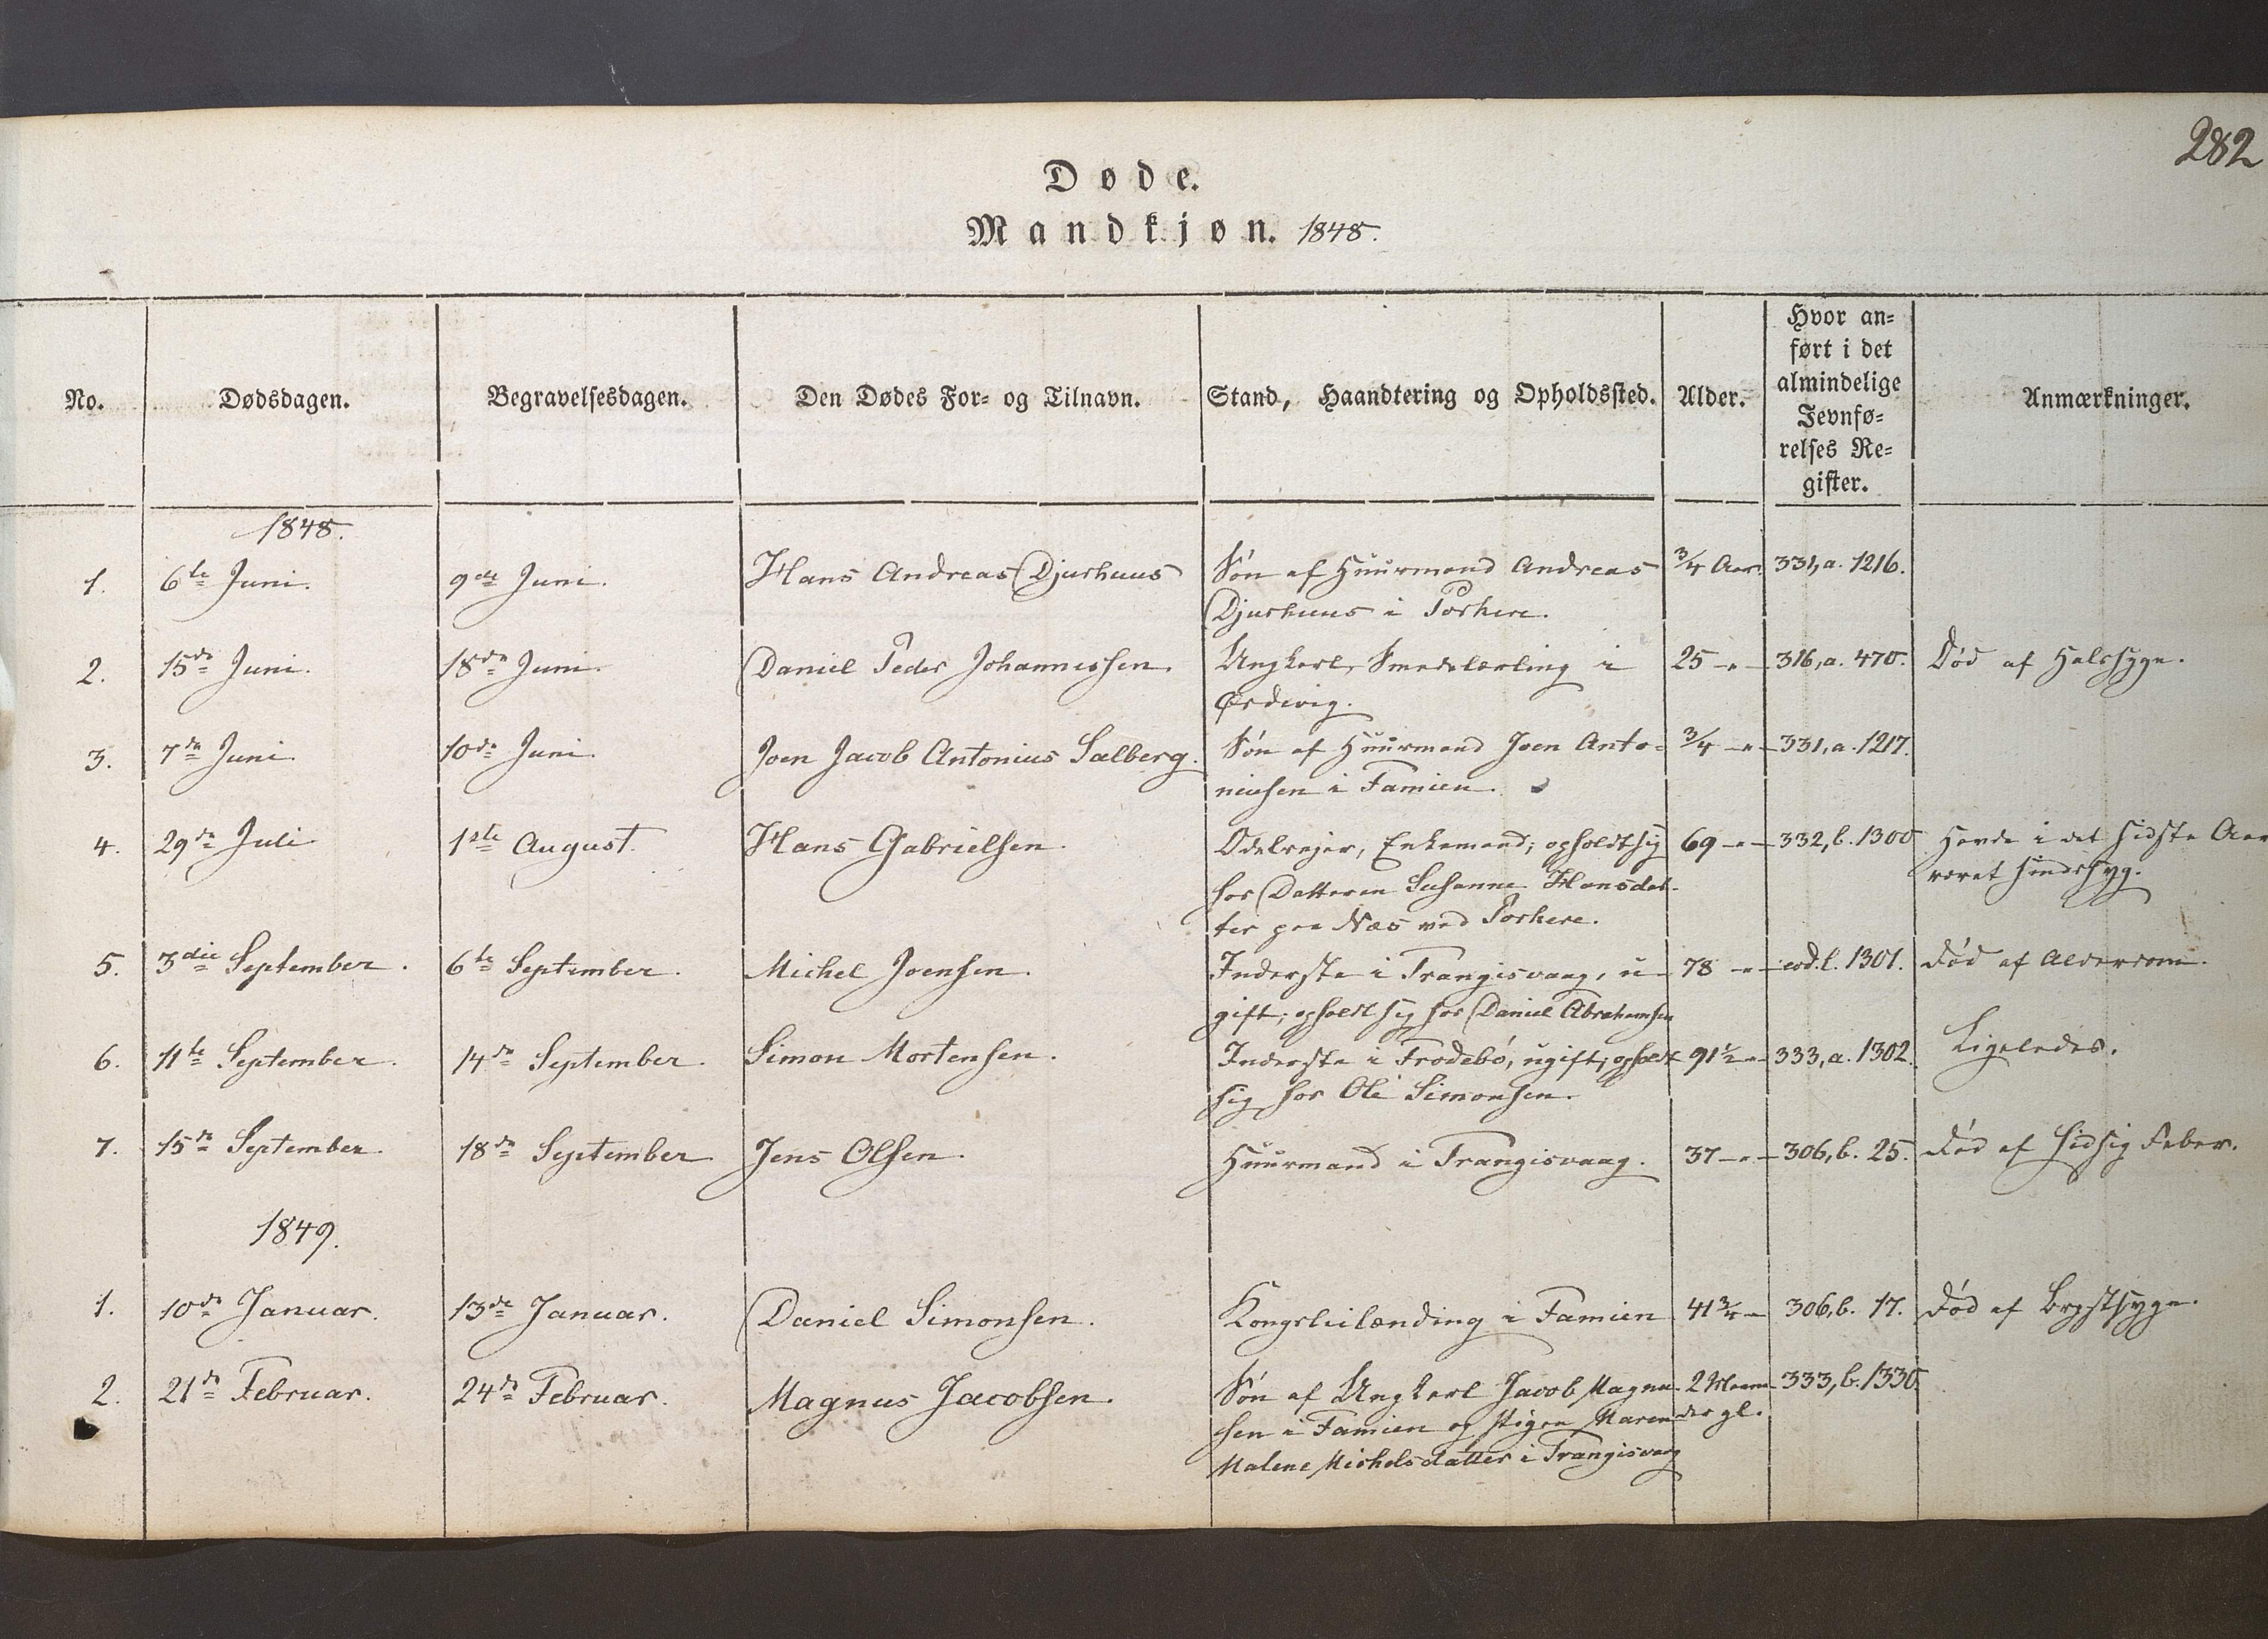 282
Døde.
Mandkjøn. 1848.
No.
Dødsdagen.
Begravelsesdagen.
Den Dødes For- og Tilnavn.
Stand, Haandtering og Opholdssted.
Alder.
Hvor an-
ført i det
almindelige
Jevnfø-
relses Re-
gister.
Anmærkninger.
1848.
1. 6te Juni. 9de Juni. Hans Andreas Djurhuus Søn af Huusmand Andreas 3/4 Aar. 331, a. 1216.
Djurhuus i Porkere.
2. 15de Juni. 18de Juni. Daniel Peder Johannessen. Ungkarl, Smedelærling i 25 -"- 316, a. 470. Død af Halssyge.
Ørdevig.
3. 7de Juni. 10de Juni. Joen Jacob Antonius Salberg. Søn af Huusmand Joen Anto- 3/4 -"- 331, a. 1217.
niusen i Famien.
4. 29de Juli 1ste August. Hans Gabrielsen. Odelsejer, Enkemand; opholdt sig 69 -"- 332, b. 1300 Havde i det sidste Aar
hos Datteren Susanne Hansdat- været sindssyg.
ter paa Næs ved Porkere.
5. 3die September. 6te September. Michel Joensen. Inderste i Trangisvaag, u- 78 -"- eod. l. 1301. Død af Alderdom.
gift; opholdt sig hos Daniel Abrahamsen
6. 11te September. 14de September. Simon Mortensen. Inderste i Frodebø, ugift; opholdt 91 1/2 -"- 333, a. 1302. Ligeledes.
sig hos Ole Simonsen.
7. 15de September. 18de September Jens Olsen. Huusmand i Trangisvaag. 37 -"- 306, b. 25. Død af hidsig Feber.
1849.
1. 10de Januar. 13de Januar. Daniel Simonsen. Kongsleilænding i Famien 41 3/4 -"- 306, b. 17. Død af Brystsyge.
2. 21de Februar. 24de Februar. Magnus Jacobsen. Søn af Ungkarl Jacob Magnu- 2 Maane- 333, b. 1330.
sen i Famien og Pigen Maren der gl.
Malene Michelsdatter i Trangisvaag